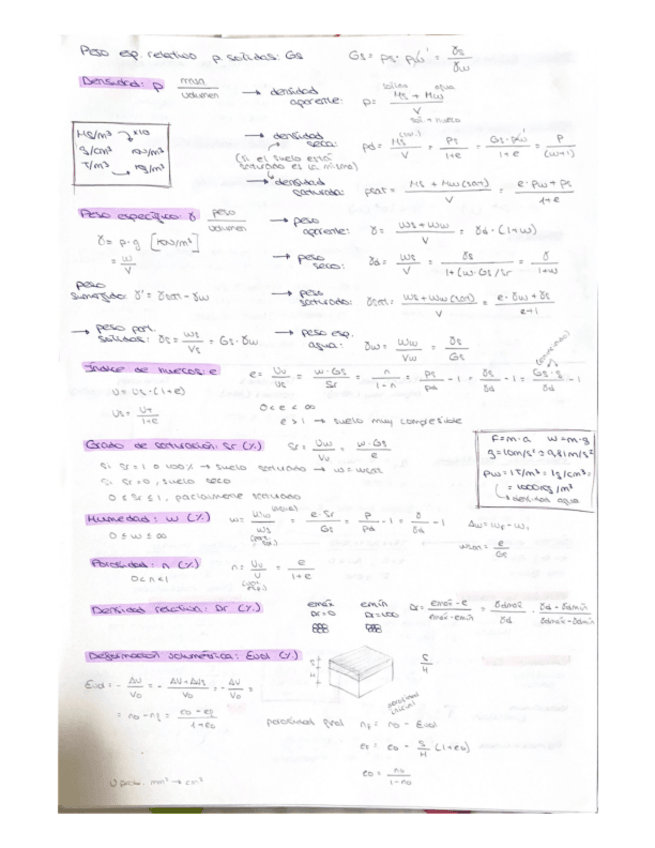 Peso esp. relativo p. solidas: Gs   Gs = ρs · ρw' = γs/γw
Densidad: ρ   masa/volumen → densidad aparente: ρ = (Ms + Mw)/V
sólido   agua
sol + hueco
Mg/m³ → x10
g/cm³   kN/m³
T/m³ → kg/m³
→ densidad seca: ρd = Ms/V = ρs/(1+e) = Gs·ρw'/(1+e) = ρ/(w+1)
(si el suelo está saturado es la misma)
→ densidad saturada: ρsat = (Ms + Mw(sat))/V = (e·ρw + ρs)/(1+e)
Peso específico: γ   peso/volumen → peso aparente: γ = (Ws + Ww)/V = γd · (1+w)
γ = ρ·g [kN/m³]
= W/V
→ peso seco: γd = Ws/V = γs/(1+(w·Gs/Sr) = γ/(1+w)
peso sumergido: γ' = γsat - γw
→ peso saturado: γsat = (Ws + Ww(sat))/V = (e·γw + γs)/(e+1)
→ peso part. sólidas: γs = Ws/Vs = Gs·γw
→ peso esp. agua: γw = Ww/Vw = γs/Gs
Índice de huecos: e   e = Vv/Vs = w·Gs/Sr = n/(1-n) = ρs/ρd - 1 = γs/γd - 1 = Gs·g/γd - 1
V = Vs·(1+e)
0 < e < ∞
Vs = VT/(1+e)
e > 1 → suelo muy compresible
Grado de saturación: Sr (%)   Sr = Vw/Vv = w·Gs/e
Si Sr = 1 o 100% → suelo saturado → w = wsat
Si Sr = 0, suelo seco
0 ≤ Sr ≤ 1, parcialmente saturado
F = m·a   W = m·g
g = 10m/s² = 9,81m/s²
ρw = 1T/m³ = 1g/cm³ =
= 1000kg/m³
→ densidad agua
Humedad: w (%)   w = Ww/Ws = e·Sr/Gs = ρ/ρd - 1 = γ/γd - 1   Δw = wf - wi
(agua)
(part. sol.)
0 ≤ w ≤ ∞
wsat = e/Gs
Porosidad: n (%)   n = Vv/V = e/(1+e)
0 < n < 1
Densidad relativa: Dr (%)   emáx   emín   Dr = (emáx - e)/(emáx - emín) = γdmáx/γd · (γd - γdmín)/(γdmáx - γdmín)
Dr = 0   Dr = 100
Deformación volumétrica: Evol (%)
S
H
S/H
Evol = - ΔV/V0 = - (ΔV + ΔVs)/V0 = - ΔV/V0 =
= n0 - nf = (e0 - ef)/(1+e0)
porosidad inicial
porosidad final   nf = n0 - Evol
ef = e0 - S/H (1+e0)
e0 = n0/(1-n0)
mm³ → cm³